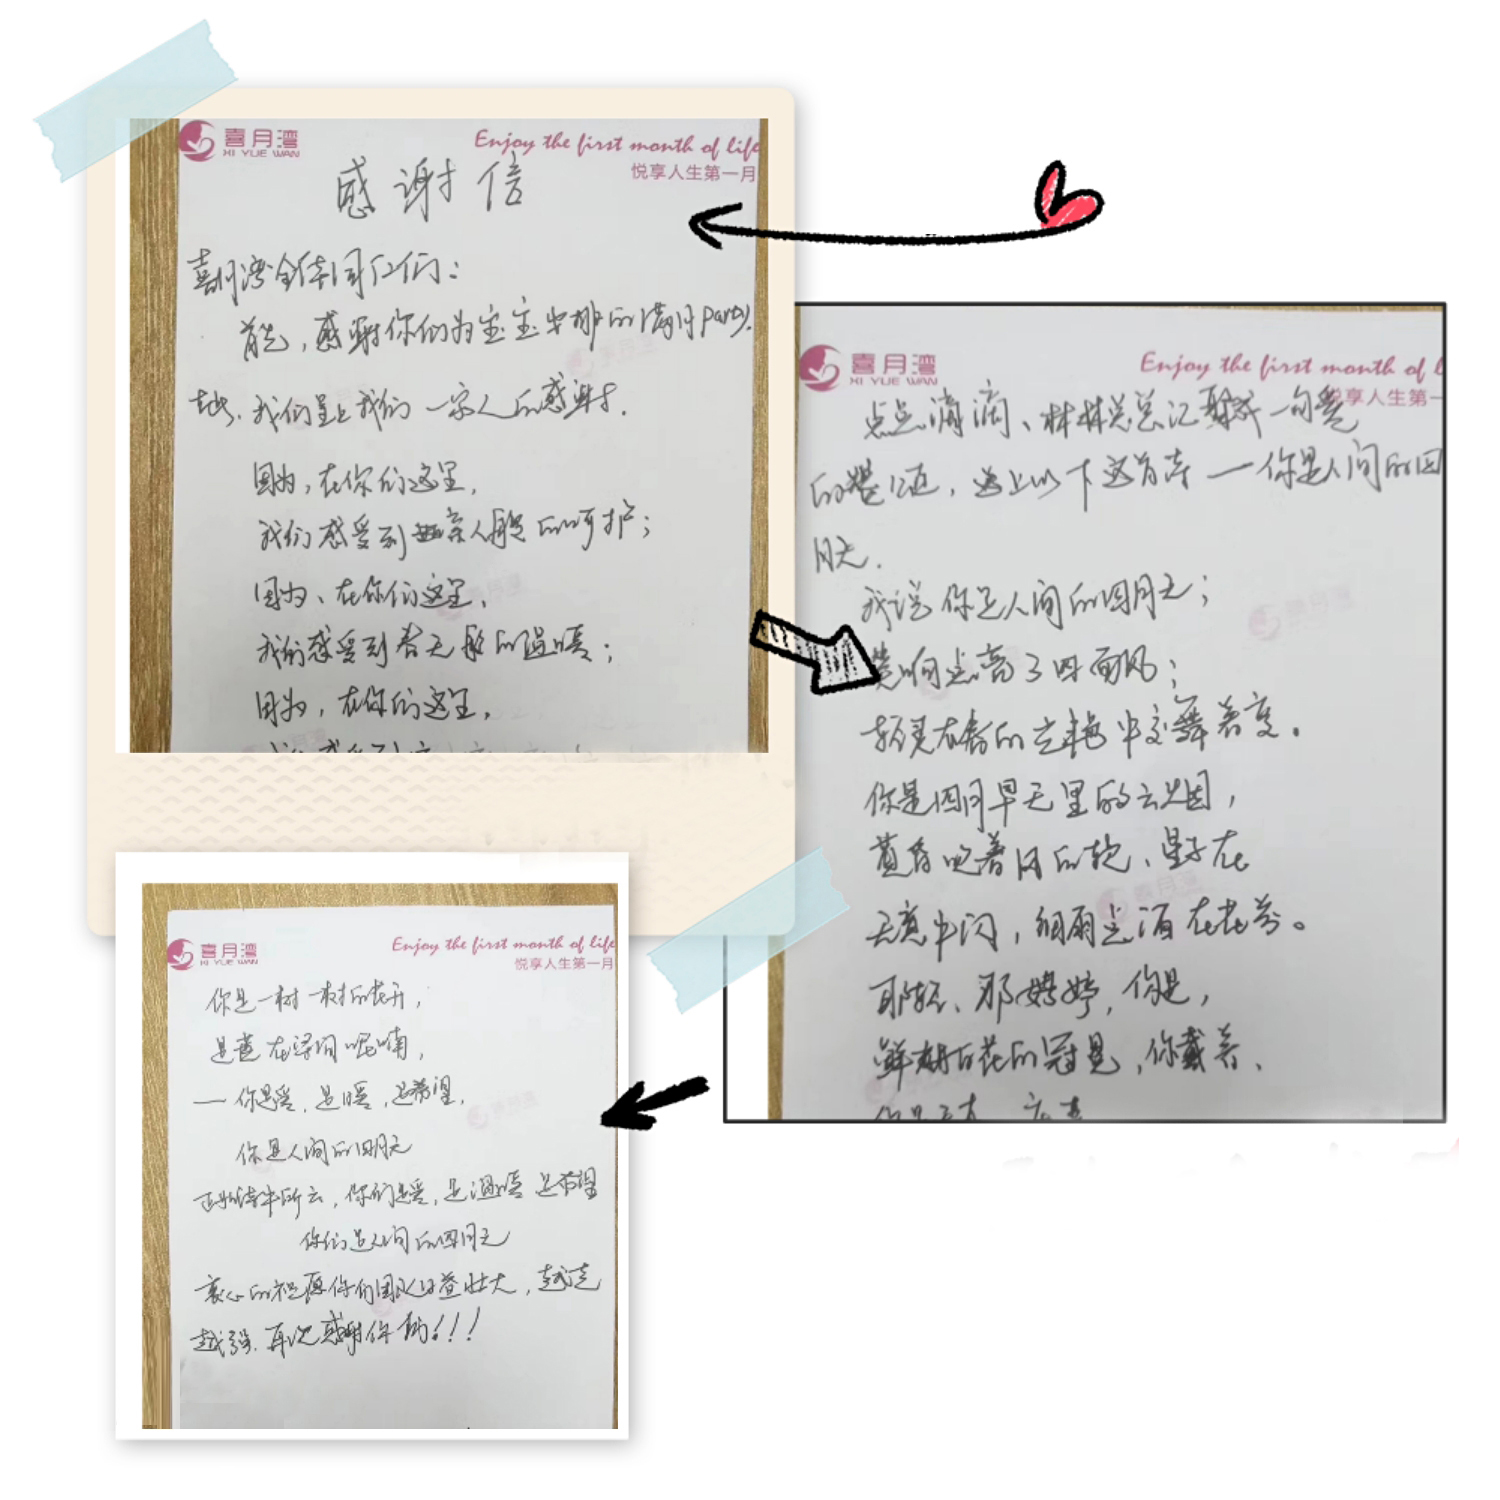 喜月湾
XI YUE WAN
Enjoy the first month of life
悦享人生第一月
感谢信
喜月湾全体同仁们：
首先，感谢你们为宝宝安排的满月party.
在此，我们呈上我们一家人的感谢。
因为，在你们这里，
我们感受到亲人般的呵护；
因为、在你们这里，
我们感受到春天般的温暖；
因为，在你们这里，
喜月湾
XI YUE WAN
Enjoy the first month of l
悦享人生第一
点点滴滴、林林总总汇聚成一句爱
的，送上以下这首诗一你是人间的四
月天.
我说你是人间的四月天；
笑响点亮了四面风；
轻灵在春的光艳中交舞着变。
你是四月早天里的云烟，
黄昏吹着风的软、星子在
无意中闪，细雨点洒在花前。
那轻、那娉婷，你是，
鲜妍百花的冠冕，你戴着、
喜月湾
XI YUE WAN
Enjoy the first month of life
悦享人生第一月
你是一树一树的花开，
是燕在梁间呢喃，
一你是爱，是暖，是希望，
你是人间的四月天
正如诗中所云，你们是爱，是温暖 是希望
你们是人间的四月天
衷心的祝愿你们团队日益壮大，越走
越强. 再次感谢你们！！！